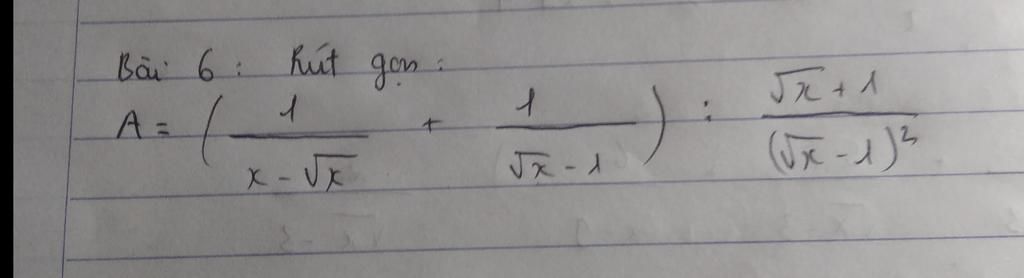 Bài 6 : Rút gọn :
A = ( 1/(x - √x) + 1/(√x - 1) ) : (√x + 1)/(√x - 1)²